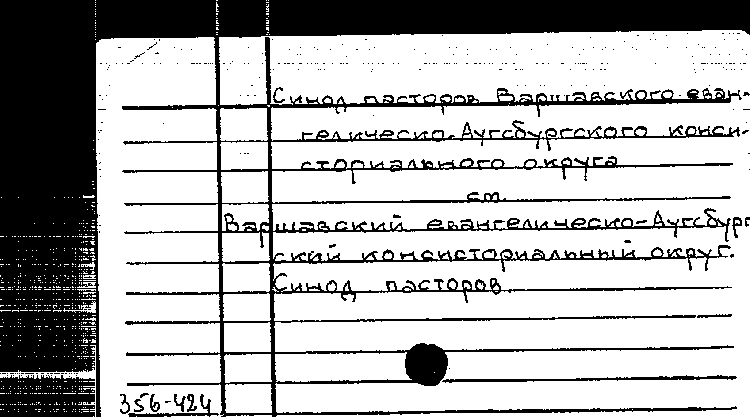 Синод пасторов Варшавского еван-
гелическо-Аугсбургского конси-
сториального округа
см.
Варшавский евангелическо-Аугсбург
ский консисториальный округ.
Синод пасторов.
356-424